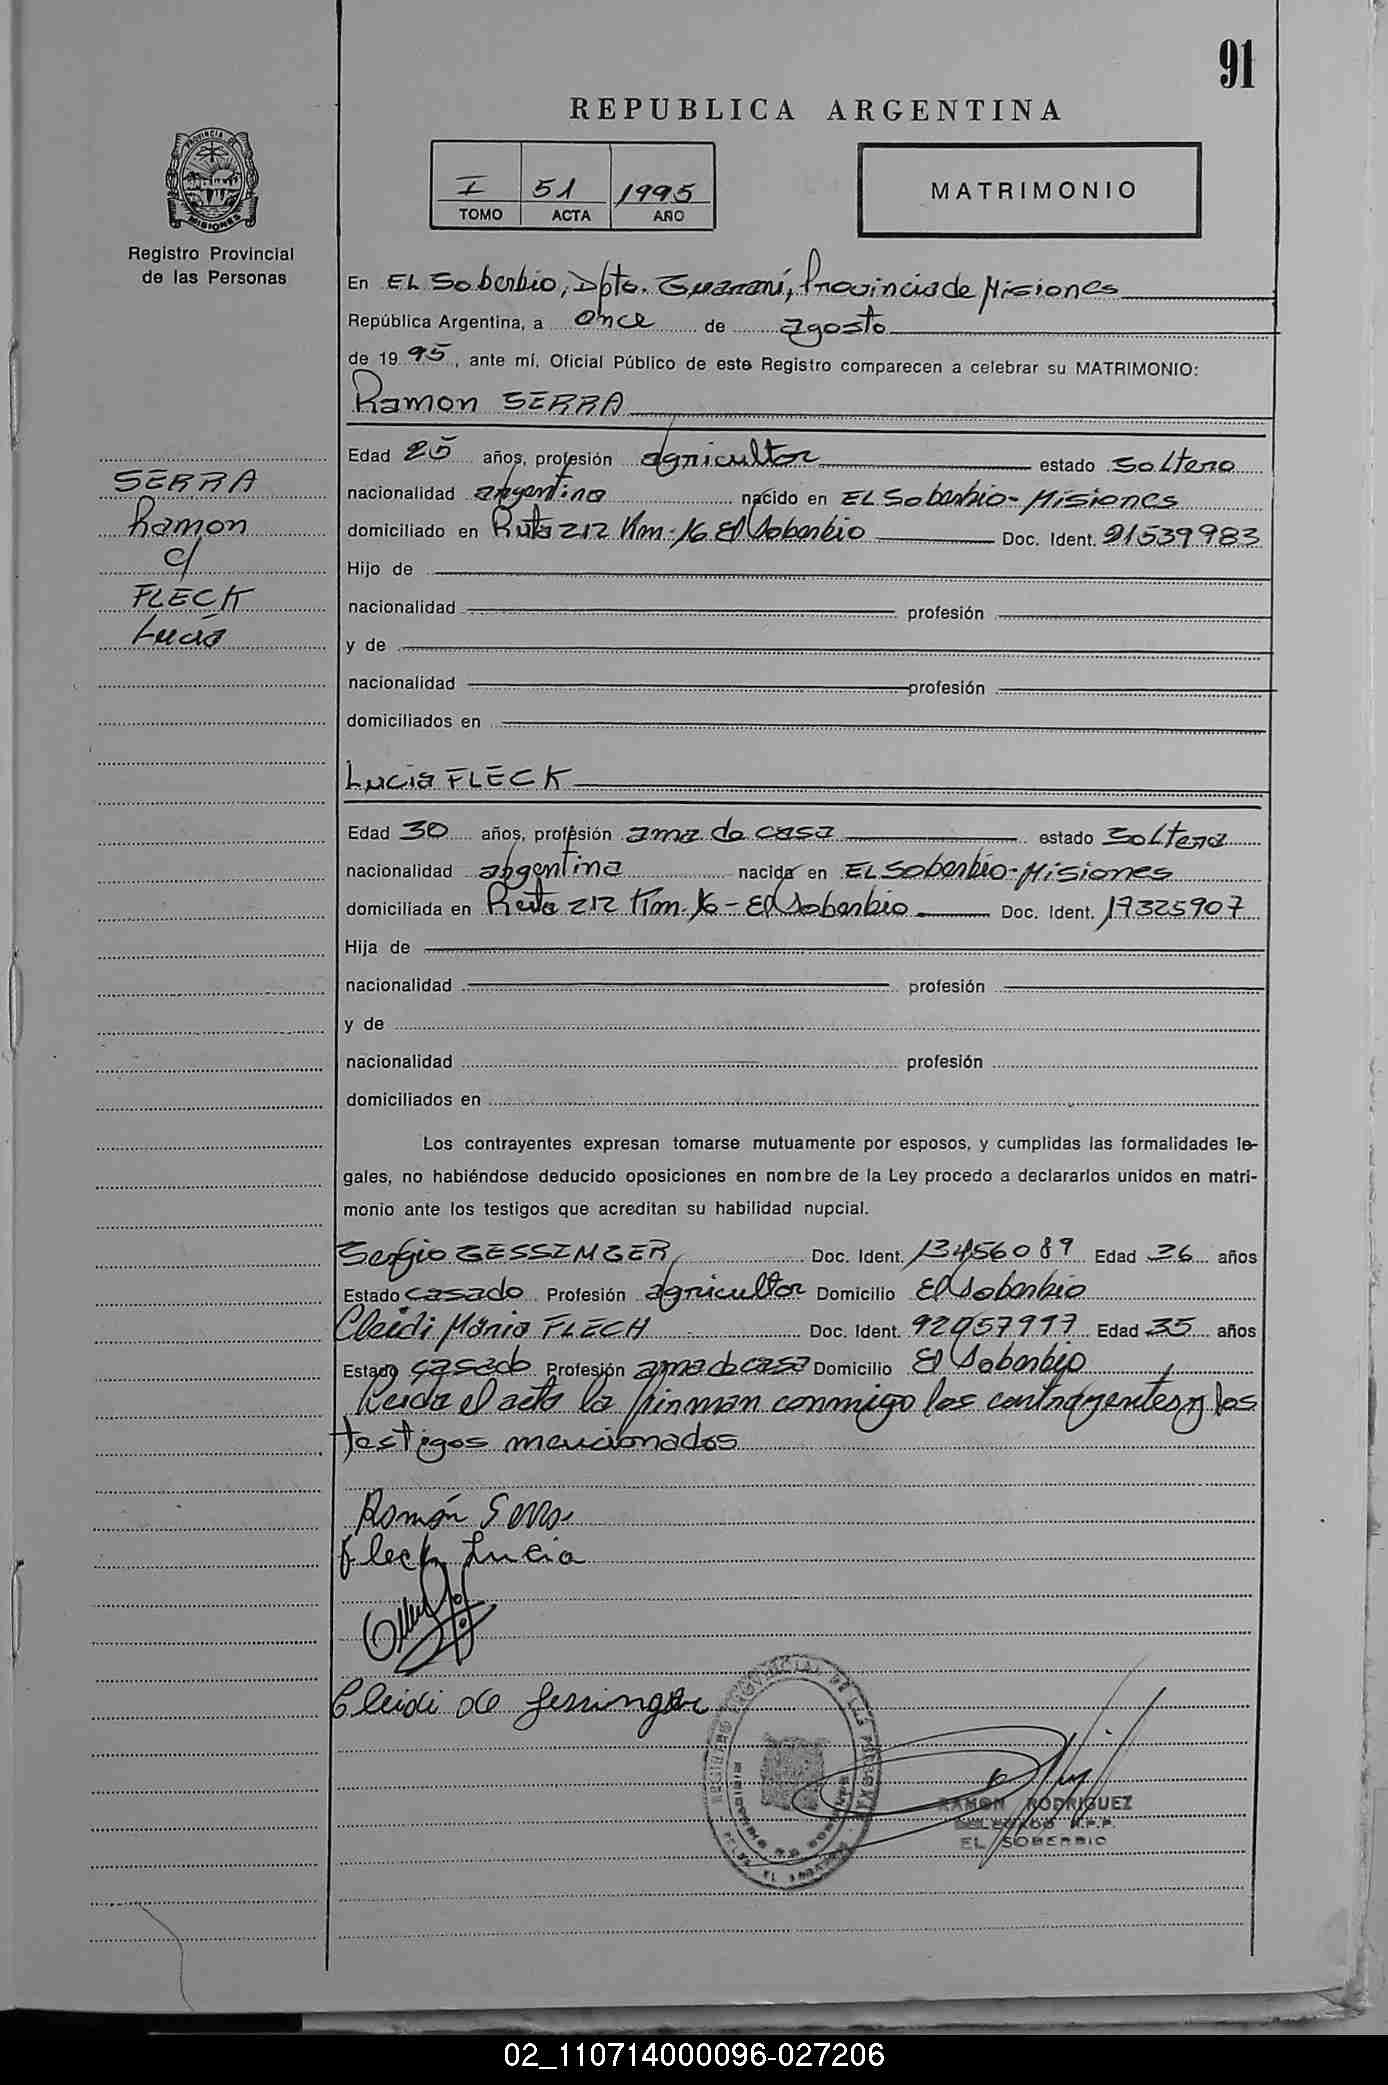 91
REPUBLICA ARGENTINA
I 51 1995
TOMO ACTA AÑO
MATRIMONIO
PROVINCIA DE
MISIONES
Registro Provincial
de las Personas
En EL Soberbio, Dpto. Guaraní, Provincia de Misiones
República Argentina, a once de agosto
de 19 95, ante mí, Oficial Público de este Registro comparecen a celebrar su MATRIMONIO:
Ramon SERRA
Edad 25 años, profesión agricultor estado soltero
nacionalidad argentina nacido en EL Soberbio - Misiones
domiciliado en Ruta 212 Km. 16 El Soberbio Doc. Ident. 21539983
Hijo de
nacionalidad profesión
y de
nacionalidad profesión
domiciliados en
SERRA
Ramon
c/
FLECK
Lucia
Lucia FLECK
Edad 30 años, profesión ama de casa estado soltera
nacionalidad argentina nacida en EL Soberbio - Misiones
domiciliada en Ruta 212 Km. 16 - El Soberbio Doc. Ident. 17325907
Hija de
nacionalidad profesión
y de
nacionalidad profesión
domiciliados en
Los contrayentes expresan tomarse mutuamente por esposos, y cumplidas las formalidades le-
gales, no habiéndose deducido oposiciones en nombre de la Ley procedo a declararlos unidos en matri-
monio ante los testigos que acreditan su habilidad nupcial.
Sergio GESSINGER Doc. Ident. 13456089 Edad 36 años
Estado casado Profesión agricultor Domicilio El Soberbio
Cleidi Mária FLECH Doc. Ident. 92957997 Edad 35 años
Estado casado Profesión ama de casa Domicilio El Soberbio
Leida el acta la firman conmigo los contrayentes y los
testigos mencionados
Ramón Serra
Fleck Lucia
Cleidi de Gessinger
RAMON RODRIGUEZ
DELEGADO R.P.P.
EL SOBERBIO
02_110714000096-027206